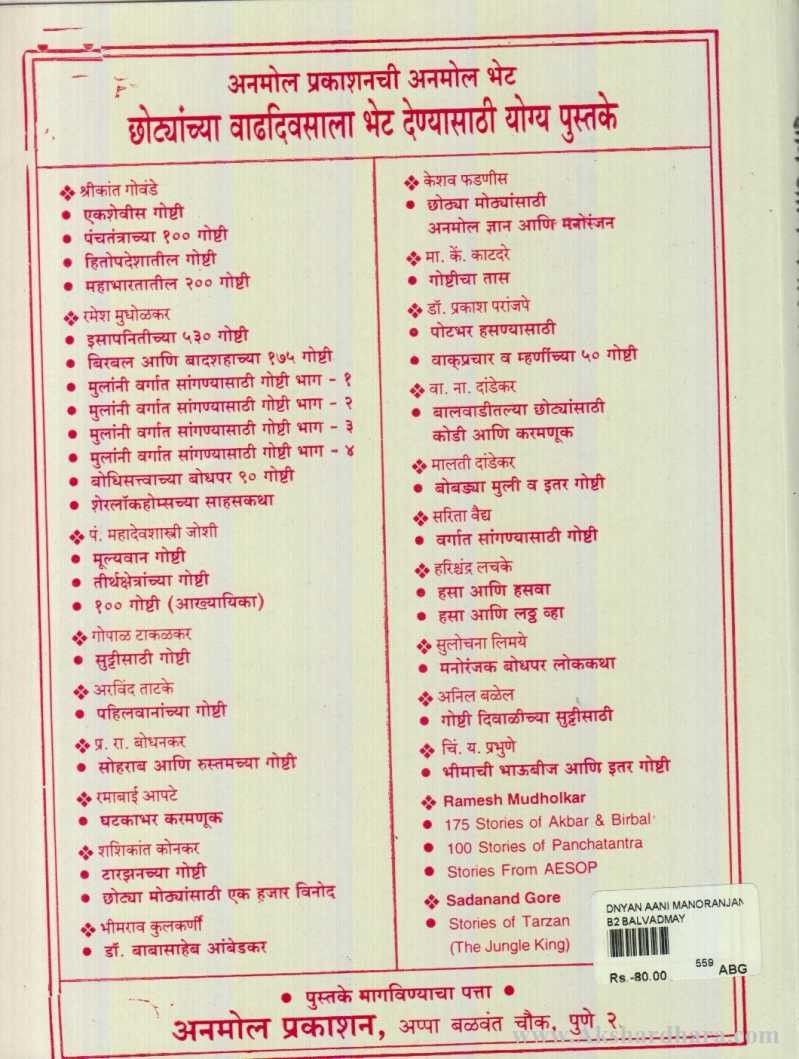 अनमोल प्रकाशनची अनमोल भेट
छोट्यांच्या वाढदिवसाला भेट देण्यासाठी योग्य पुस्तके
❖ श्रीकांत गोवंडे
● एकशेवीस गोष्टी
● पंचतंत्राच्या १०० गोष्टी
● हितोपदेशातील गोष्टी
● महाभारतातील २०० गोष्टी
❖ रमेश मुधोळकर
● इसापनितीच्या ५३० गोष्टी
● बिरबल आणि बादशहाच्या १७५ गोष्टी
● मुलांनी वर्गात सांगण्यासाठी गोष्टी भाग - १
● मुलांनी वर्गात सांगण्यासाठी गोष्टी भाग - २
● मुलांनी वर्गात सांगण्यासाठी गोष्टी भाग - ३
● मुलांनी वर्गात सांगण्यासाठी गोष्टी भाग - ४
● बोधिसत्त्वाच्या बोधपर ९० गोष्टी
● शेरलॉकहोम्सच्या साहसकथा
❖ पं. महादेवशास्त्री जोशी
● मूल्यवान गोष्टी
● तीर्थक्षेत्रांच्या गोष्टी
● १०० गोष्टी (आख्यायिका)
❖ गोपाळ टाकळकर
● सुट्टीसाठी गोष्टी
❖ अरविंद ताटके
● पहिलवानांच्या गोष्टी
❖ प्र. रा. बोधनकर
● सोहराब आणि रुस्तमच्या गोष्टी
❖ रमाबाई आपटे
● घटकाभर करमणूक
❖ शशिकांत कोनकर
● टारझनच्या गोष्टी
● छोट्या मोठ्यांसाठी एक हजार विनोद
❖ भीमराव कुलकर्णी
● डॉ. बाबासाहेब आंबेडकर
❖ केशव फडणीस
● छोट्या मोठ्यांसाठी
अनमोल ज्ञान आणि मनोरंजन
❖ मा. कें. काटदरे
● गोष्टीचा तास
❖ डॉ. प्रकाश परांजपे
● पोटभर हसण्यासाठी
● वाक्‌प्रचार व म्हणींच्या ५० गोष्टी
❖ वा. ना. दांडेकर
● बालवाडीतल्या छोट्यांसाठी
कोडी आणि करमणूक
❖ मालती दांडेकर
● बोबड्या मुली व इतर गोष्टी
❖ सरिता वैद्य
● वर्गात सांगण्यासाठी गोष्टी
❖ हरिश्चंद्र लचके
● हसा आणि हसवा
● हसा आणि लठ्ठ व्हा
❖ सुलोचना लिमये
● मनोरंजक बोधपर लोककथा
❖ अनिल बळेल
● गोष्टी दिवाळीच्या सुट्टीसाठी
❖ चिं. य. प्रभुणे
● भीमाची भाऊबीज आणि इतर गोष्टी
❖ Ramesh Mudholkar
● 175 Stories of Akbar & Birbal
● 100 Stories of Panchatantra
● Stories From AESOP
❖ Sadanand Gore
● Stories of Tarzan
(The Jungle King)
DNYAN AANI MANORANJAN
B2 BALVADMAY
Rs.-80.00 559 ABG
● पुस्तके मागविण्याचा पत्ता ●
अनमोल प्रकाशन, अप्पा बळवंत चौक, पुणे २
www.Akshardhara.com